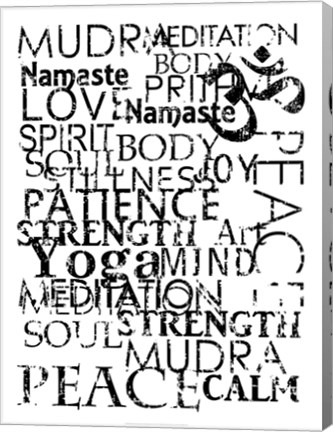 MUDRA MEDITATION
BODY ॐ
Namaste PRITHVI
LOVE Namaste
SPIRIT BODY
SOUL JOY
STILLNESS
PEACE
PATIENCE
STRENGTH Art
Yoga MIND
MEDITATION
SOUL STRENGTH
MUDRA
PEACE CALM